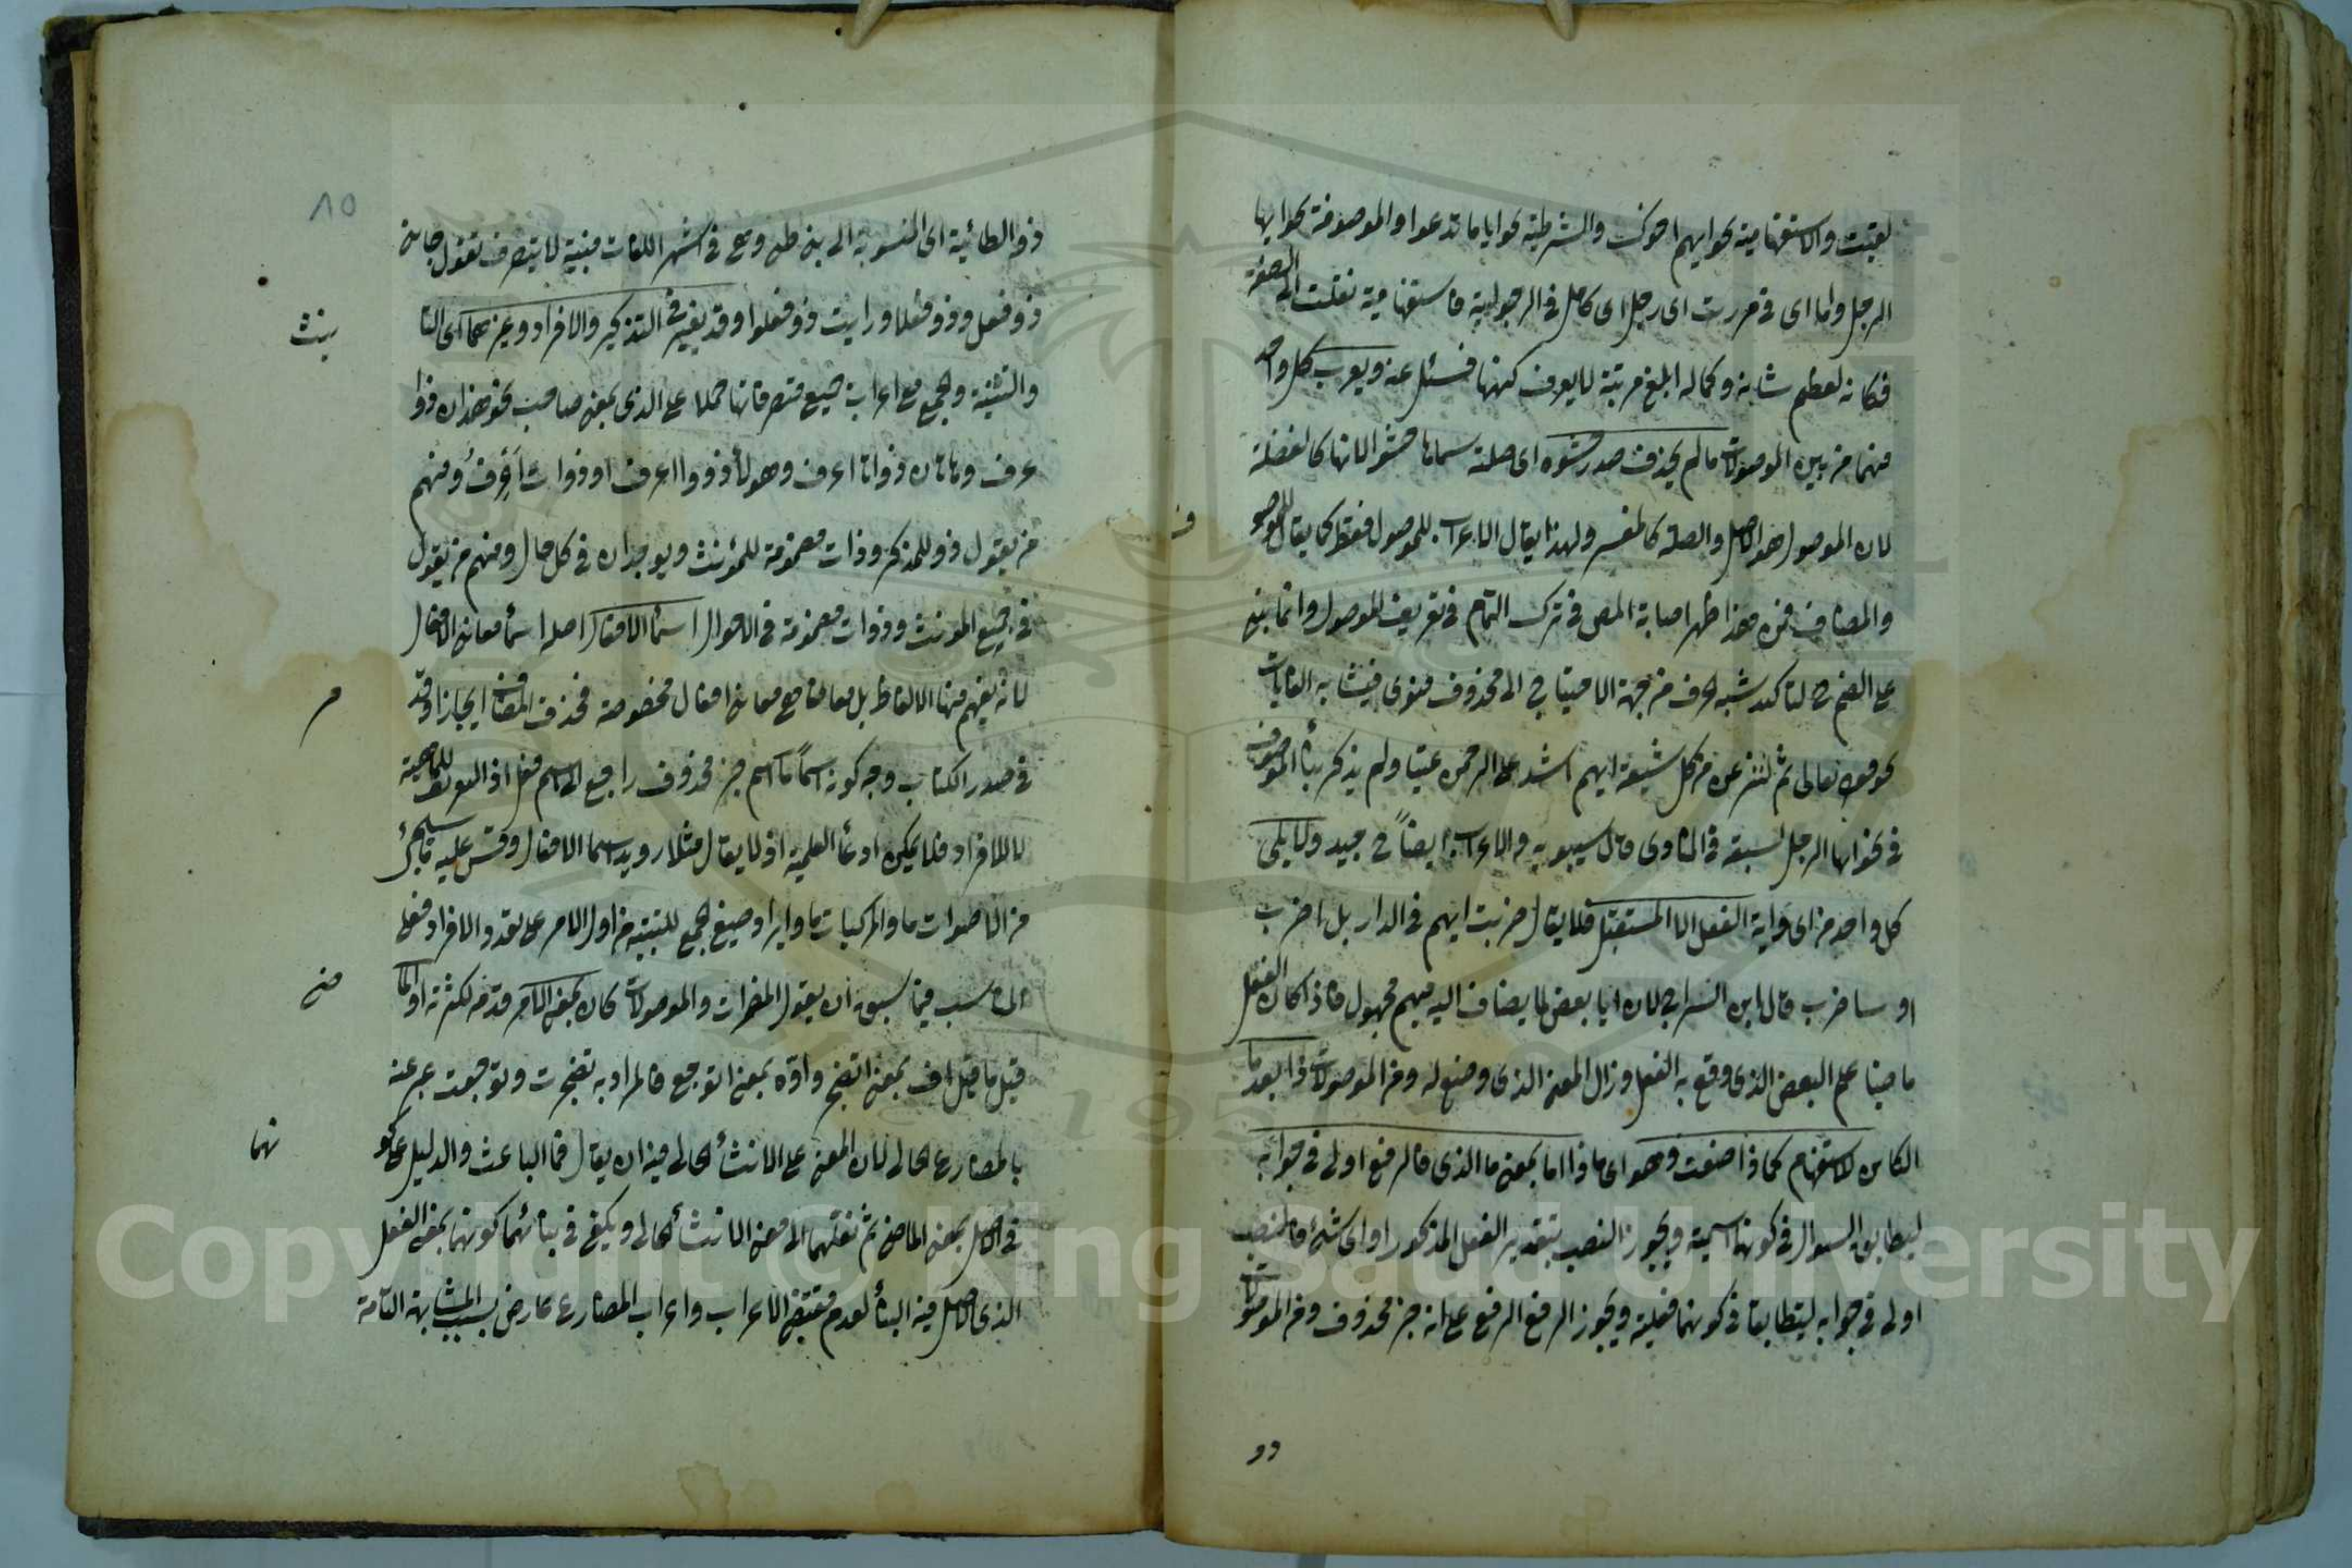 لقيت والاستفهامية نحو ايهم اخوك والشرطية نحو ايا ما تدعوا والموصوفة نحو ايها
الرجل واما اى في مررت اى رجل اى كامل في الرجولية فاستفهامية نقلت الى الصفة
فكانه لعظم شانه وكماله ابلغ مرتبة لا يعرف كنهها فسئل عنه ويعرب كل واحد
منهما من بين الموصولات ما لم يحذف صدر حشوه اى صلة سماها حشوا لانها كالفضلة
لان الموصول هو الاصل والصلة كالمفسر ولهذا يقال الاعراب للموصول فقط كما يقال للموصو
ف
والمضاف فمن هذا ظهر اصابة المص في ترك التام في تعريف الموصول وانما بنى
على الضم ح لتاكد شبه الحرف من جهة الاحتياج الى محذوف منوى فيشابه الغايات
نحو قوله تعالى ثم لننزعن من كل شيعة ايهم اشد على الرحمن عتيا ولم يذكر بناء الموصوف
في نحو ايها الرجل لسبقه في المنادى قال سيبويه والاعراب ايضا ح جيد ولا يلى
كل واحد من اى واية الفعل الا المستقبل فلا يقال ضربت ايهم في الدار بل اضرب
او ساضرب قال ابن السراج لان ايا بعض لما يضاف اليه مبهم مجهول فاذا كان الفعل
ماضيا علم البعض الذى وقع به الفعل وزال المعنى الذى وضع له ومن الموصولات ذا بعد ما
الكائن للاستفهام نحو ماذا صنعت وهو اى ماذا اما بمعنى ما الذى فالرفع اولى في جوابه
ليطابق السوال في كونها اسمية ويجوز النصب بتقدير الفعل المذكور او اى شئ فالنصب
اولى في جوابه ليتطابقا في كونهما فعلية ويجوز الرفع الرفع على انه خبر محذوف ومن الموصولات
ذو
٨٥
ذو الطائية اى المنسوبة الى بنى طى وهى في اشهر اللغات مبنية لا يتصرف تقول جاءنى
ذو فعل وذو فعلا ورايت ذو فعلوا وقد يغير في التذكير والافراد وغيرهما اى التا
نيث
والتثنية والجمع مع اعراب جميع متصرفاتها حملا على الذى بمعنى صاحب نحو هذان ذوا
عرف وهاتان ذواتا اعرف وهولاء ذووا اعرف او ذوات اعرف ومنهم
من يقول ذو للمذكر وذات مضمومة للمؤنث ويوحدان في كل حال ومنهم من يقول
في جميع المونث وذوات مضمومة في الاحوال اسماء الافعال اصله اسماء معانى الافعال
لانه يفهم منها الالفاظ بل معانيها مع معانى افعال مخصوصة فحذف المضاف ايجازا وقد
مر
في صدر الكتاب وجه كونه اسما ما اسم خبر محذوف راجع الى اسم فعل اذ التعريف للماهية
لا للافراد فلا يمكن ادعاء العلمية اذ لا يقال مثلا رويد اسماء الافعال وقس عليه ما سيجئ
من الاصوات ما والمركبات ما وايراد صيغ الجمع للتنبيه من اول الامر على تعدد الافراد فعلى
المناسب فيما سبق ان يقول المضمرات والموصولات كان بمعنى الامر قدمه لكثرته او الما
ضى
قيل ما قيل اف بمعنى اتضجر واوه بمعنى اتوجع فالمراد به تضجرت وتوجعت عبر عنه
بالمضارع الحالى لان المعنى على الانشاء الحالى فيه ان يقال فما الباعث والدليل على كو
نهما
في الاصل بمعنى الماضى ثم نقلهما الى معنى الانشاء الحالى ويكفى في بنائهما كونهما بمعنى الفعل
الذى الاصل فيه البناء لعدم مقتضى الاعراب واعراب المضارع عارض بسبب المشابهة التامة